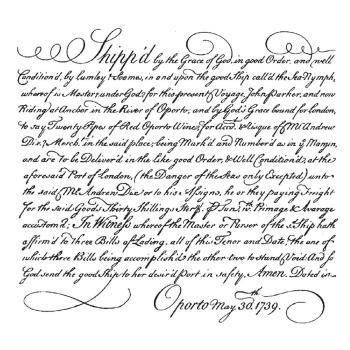 Shipp'd by the Grace of God, in good Order, and well
Condition'd, by Lumley & Soames, in and upon the good Ship call'd the Sea Nymph,
whereof is Master, under God, for this present Voyage John Parker, and now
Riding at Anchor in the River of Oporto, and by God's Grace bound for London,
to say Twenty Pipes of Red Oporto Wines for Acct. & Risque of Mr. Andrew
Dix, Merch. in the said place; being Mark'd and Number'd as in ye Margin,
and are to be Deliver'd in the Like good Order, & Well Condition'd, at the
aforesaid Port of London, (the Danger of the Seas only Excepted) unto
the said Mr. Andrew Dix or to his Assigns, he or they paying Freight
for the said Goods Thirty Shillings Sterg. P Tun, wth. Primage & Avarage
accustom'd; In Witness whereof the Master or Purser of the sd. Ship hath
affirm'd to Three Bills of Lading, all of this Tenor and Date, the one of
which three Bills being accomplish'd the other two to stand Void. And so
God send the good Ship to her desir'd Port in safety, Amen. Dated in
Oporto May 3d. 1739.